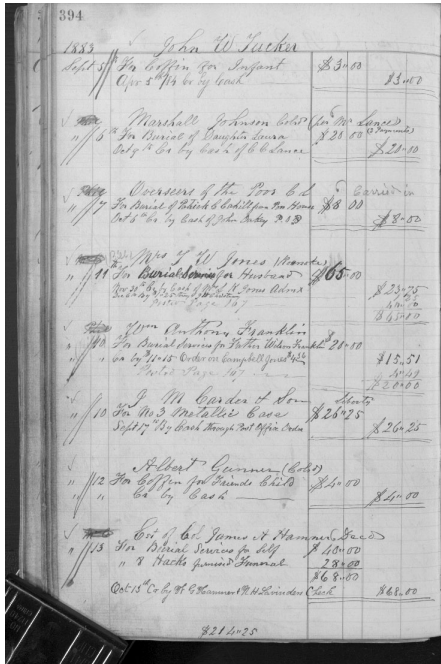 394
1883 John W Tucker
Sept 5 For Coffin for Infant $3.00
Apr 5th /84 Cr by Cash $3.00
Marshall Johnson Cold (Lance)
" 6th For Burial of Daughter Laura $20.00
Oct 9th Cr by Cash of C C Lance $20.00
Overseers of the Poor C L Carried in
" 7 For Burial of Patrick C from Poor House $8.00
Oct 6th Cr by Cash of John $8.00
Mrs T W Jones (Roanoke)
" 11 For Burial Service for Husband $65.00
Nov 30th Cr by Cash of Jones Admx $23.75
Posted Page 167
$65.00
Wm Anthony Franklin
" 10 For Burial Service for Father Wilson Franklin $20.00
Cr by $11.15 Order on Campbell Jones $4.36 $15.51
Posted Page 167 4.49
$20.00
J M Carden & Son
" 10 For No 3 Metallic Case $26.25
Sept 17th By Cash through Post Office Order $26.25
Albert Gunner (Cold)
" 12 For Coffin for Friends Child $4.00
" " Cr by Cash $4.00
Est of James A Hamner Decd
" 13 For Burial Service for Self $40.00
" 8 Hacks furnished Funeral 28.00
$68.00
Oct 13th Cr by W G Hamner & H Check $68.00
$214.25